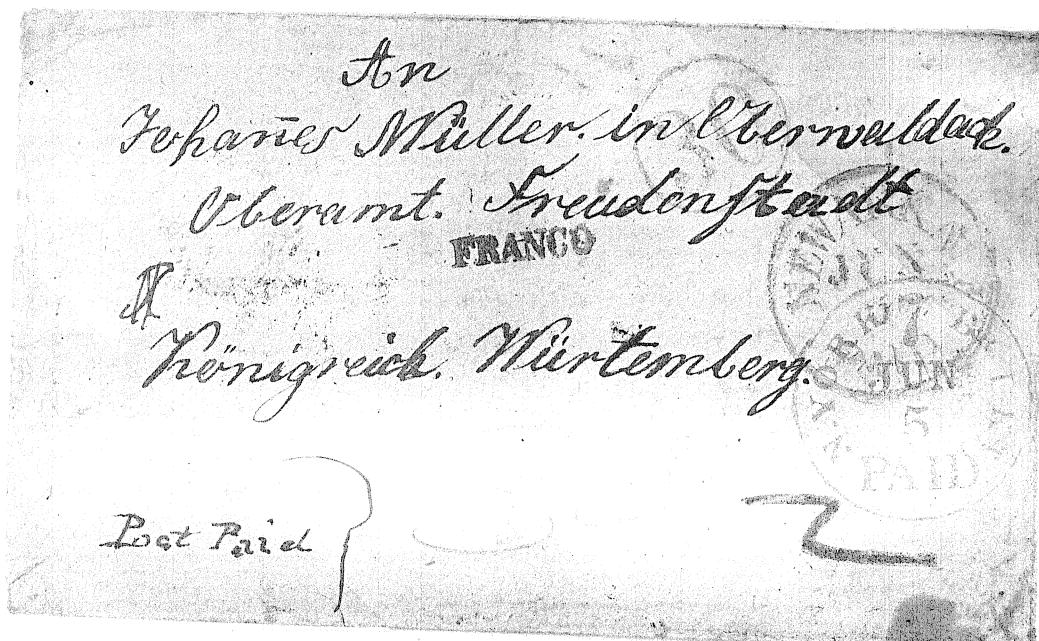 An
Johan̄es Müller. in Oberwaldach.
Oberamt. Freudenstadt
FRANCO
Königreich. Würtemberg.
30
NEW
JUN
7
N. YORK
JUN
5
PAID
Post Paid